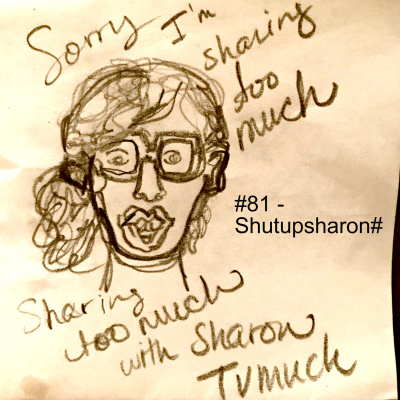 Sorry I'm
sharing
too
much
#81 -
Shutupsharon#
Sharing
too much
with Sharon
Tvmuch